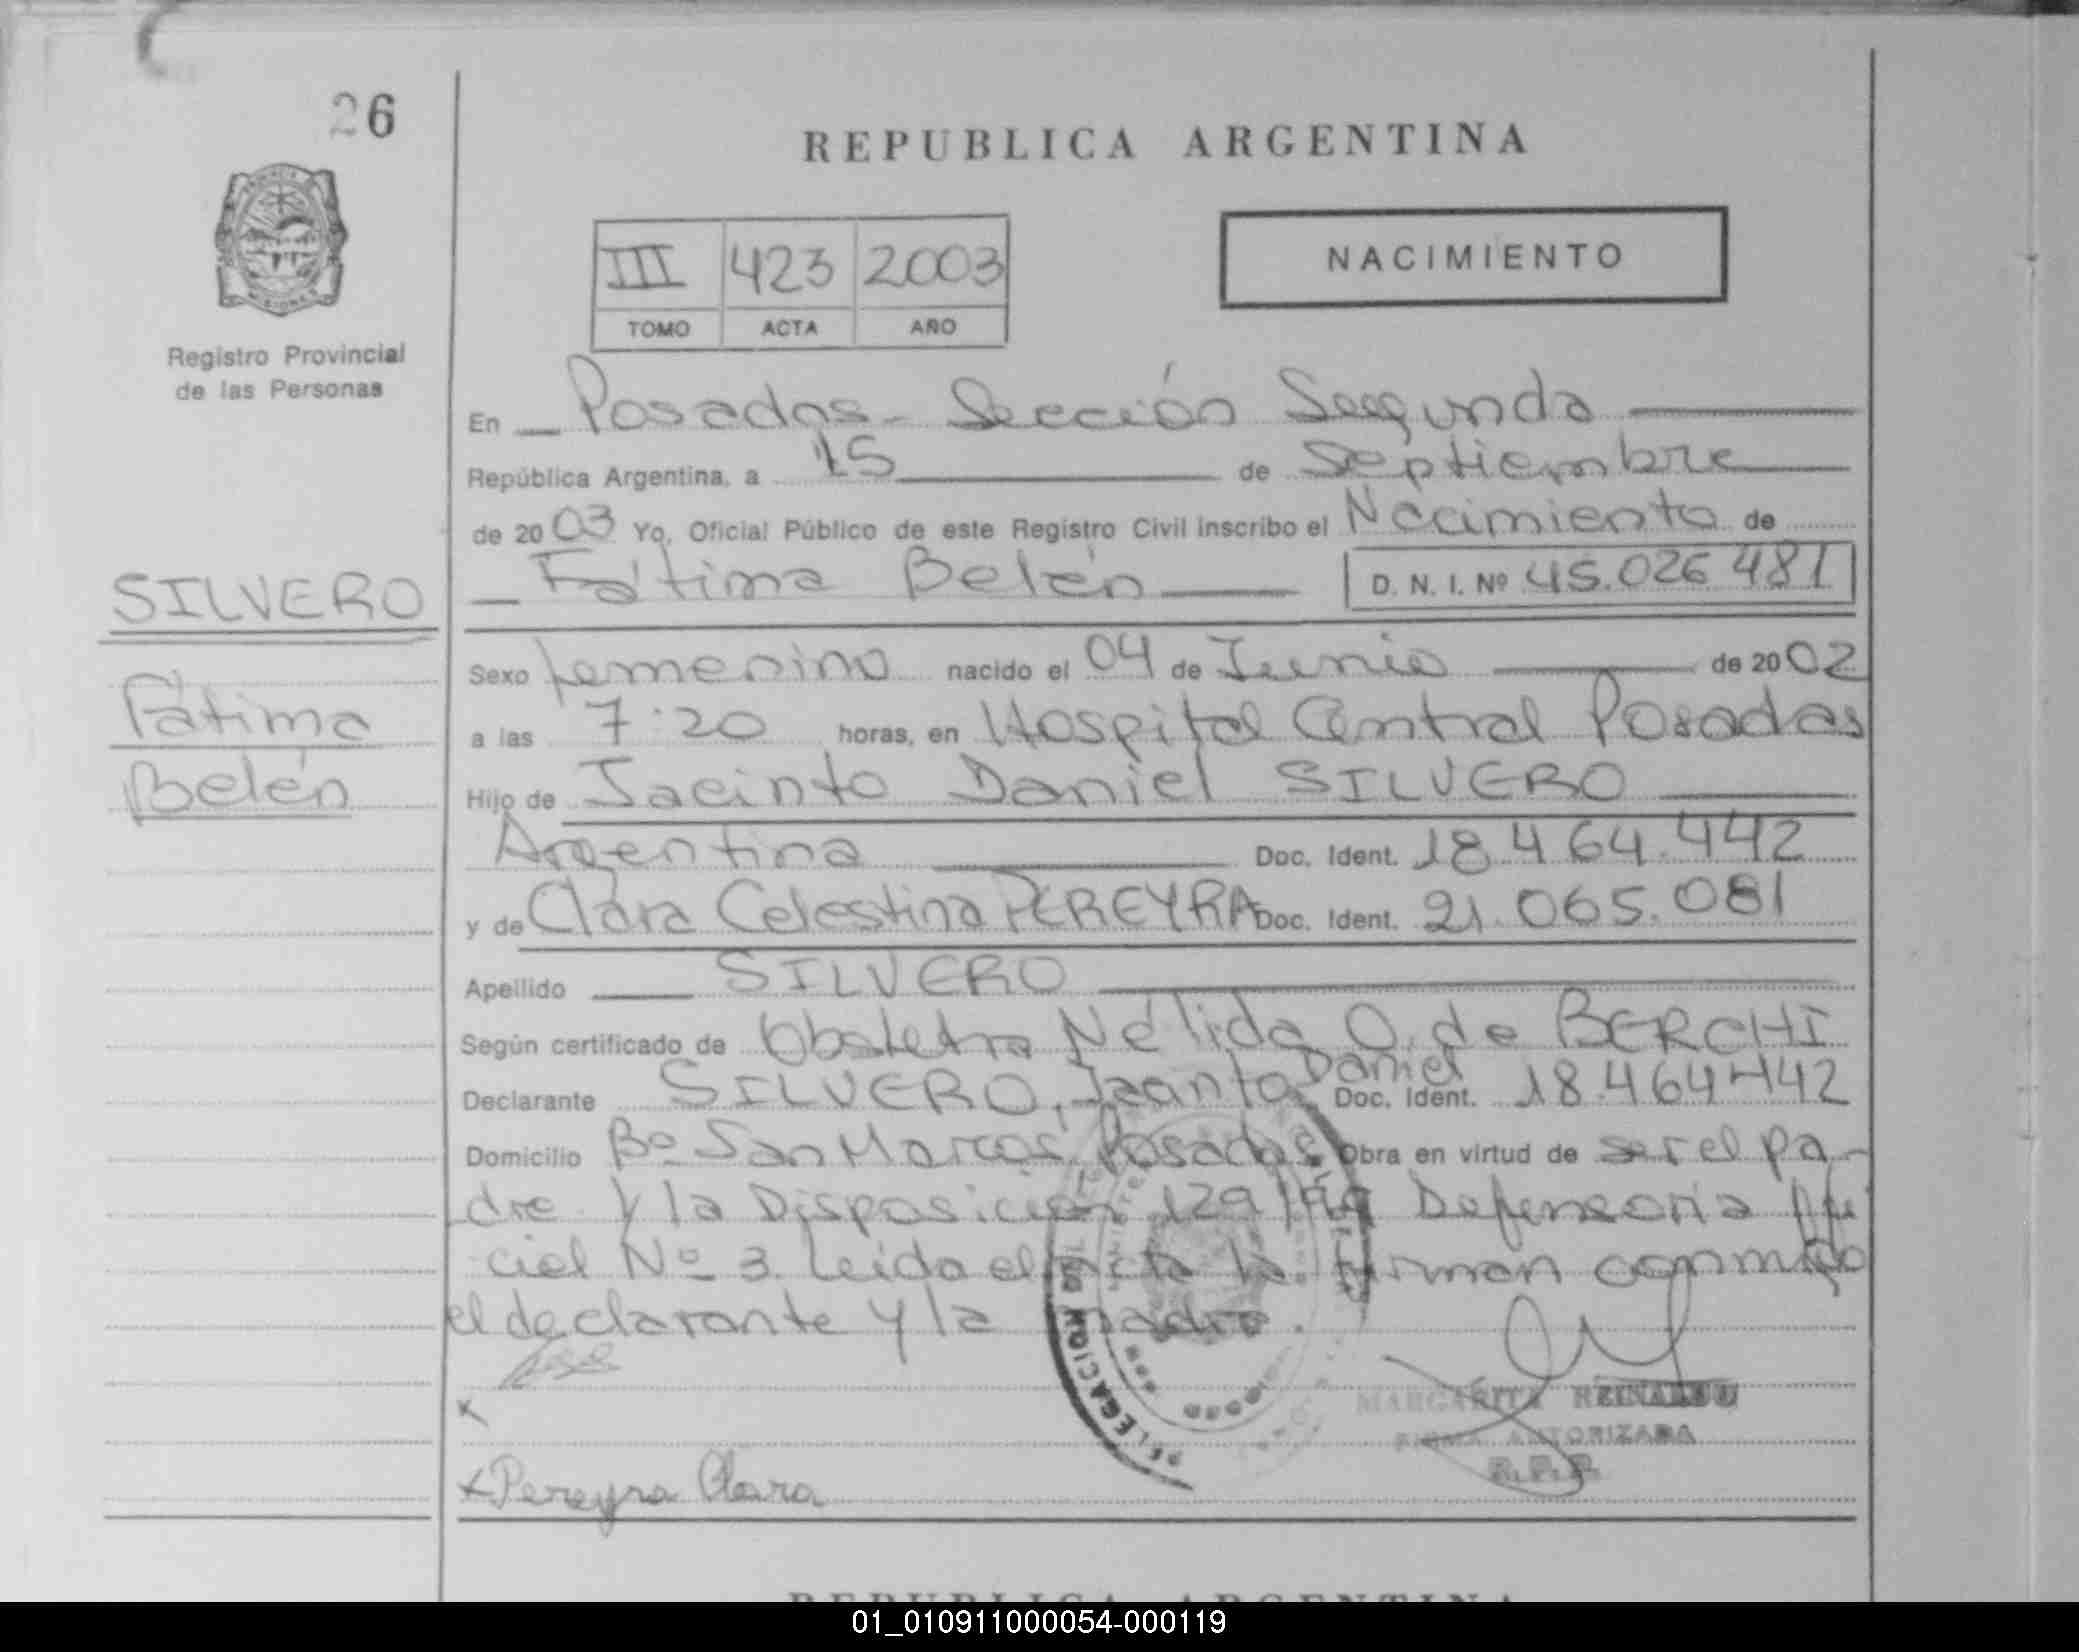 26
REPUBLICA ARGENTINA
III 423 2003
TOMO ACTA AÑO
NACIMIENTO
Registro Provincial
de las Personas
En Posadas - Sección Segunda
República Argentina, a 15 de Septiembre
de 2003 Yo, Oficial Público de este Registro Civil inscribo el Nacimiento de
Fátima Belén D. N. I. Nº 45.026 481
SILVERO
Fátima
Belén
Sexo femenino nacido el 04 de Junio de 2002
a las 7:20 horas, en Hospital Central Posadas
Hijo de Jacinto Daniel SILVERO
Argentina Doc. Ident. 18.464.442
y de Clara Celestina PEREYRA Doc. Ident. 21.065.081
Apellido SILVERO
Según certificado de Obstetra Nélida O. de BERCHI
Declarante SILVERO, Jacinto Daniel Doc. Ident. 18.464.442
Domicilio Bº San Marcos Posadas Obra en virtud de ser el pa-
dre y la Disposición 129/99 Defensoría Ofi
cial Nº 3. Leída el acta la firman conmigo
el declarante y la madre.
MARGARITA
FIRMA AUTORIZADA
R.P.P.
DELEGACION
x Pereyra Clara
REPUBLICA ARGENTINA
01_010911000054-000119